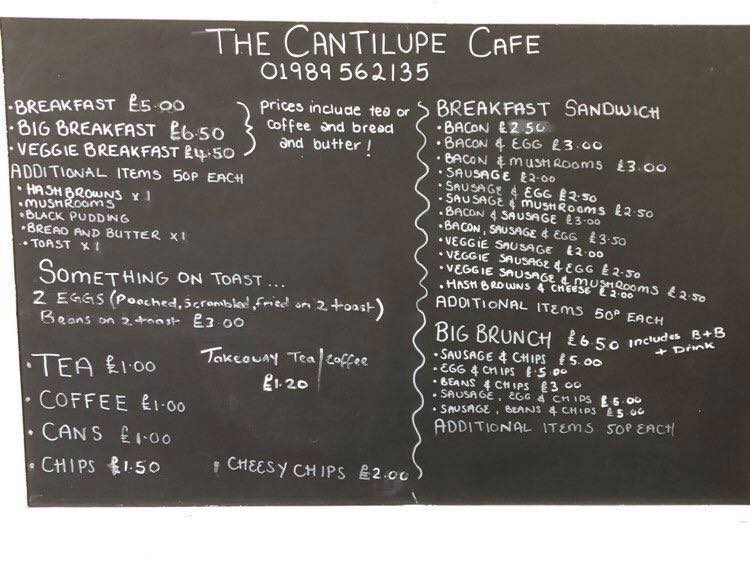 THE CANTILUPE CAFE
01989 562135
• BREAKFAST £5.00
• BIG BREAKFAST £6.50
• VEGGIE BREAKFAST £4.50
prices include tea or
coffee and bread
and butter!
ADDITIONAL ITEMS 50P EACH
• HASH BROWNS x 1
• MUSHROOMS
• BLACK PUDDING
• BREAD AND BUTTER x1
• TOAST x 1
SOMETHING ON TOAST...
2 EGGS (Poached, Scrambled, fried on 2 toast)
Beans on 2 toast £3.00
• TEA £1.00
• COFFEE £1.00
• CANS £1.00
• CHIPS £1.50
TAKEAWAY Tea/Coffee
£1.20
• CHEESY CHIPS £2.00
BREAKFAST SANDWICH
• BACON £2.50
• BACON & EGG £3.00
• BACON & MUSHROOMS £3.00
• SAUSAGE £2.00
• SAUSAGE & EGG £2.50
• SAUSAGE & MUSHROOMS £2.50
• BACON & SAUSAGE £3.00
• BACON, SAUSAGE & EGG £3.50
• VEGGIE SAUSAGE £2.00
• VEGGIE SAUSAGE & EGG £2.50
• VEGGIE SAUSAGE & MUSHROOMS £2.50
• HASH BROWNS & CHEESE £2.00
ADDITIONAL ITEMS 50P EACH
BIG BRUNCH £6.50 includes B+B
+ Drink
• SAUSAGE & CHIPS £5.00
• EGG & CHIPS £5.00
• BEANS & CHIPS £3.00
• SAUSAGE, EGG & CHIPS £5.00
• SAUSAGE, BEANS & CHIPS £5.00
ADDITIONAL ITEMS 50P EACH